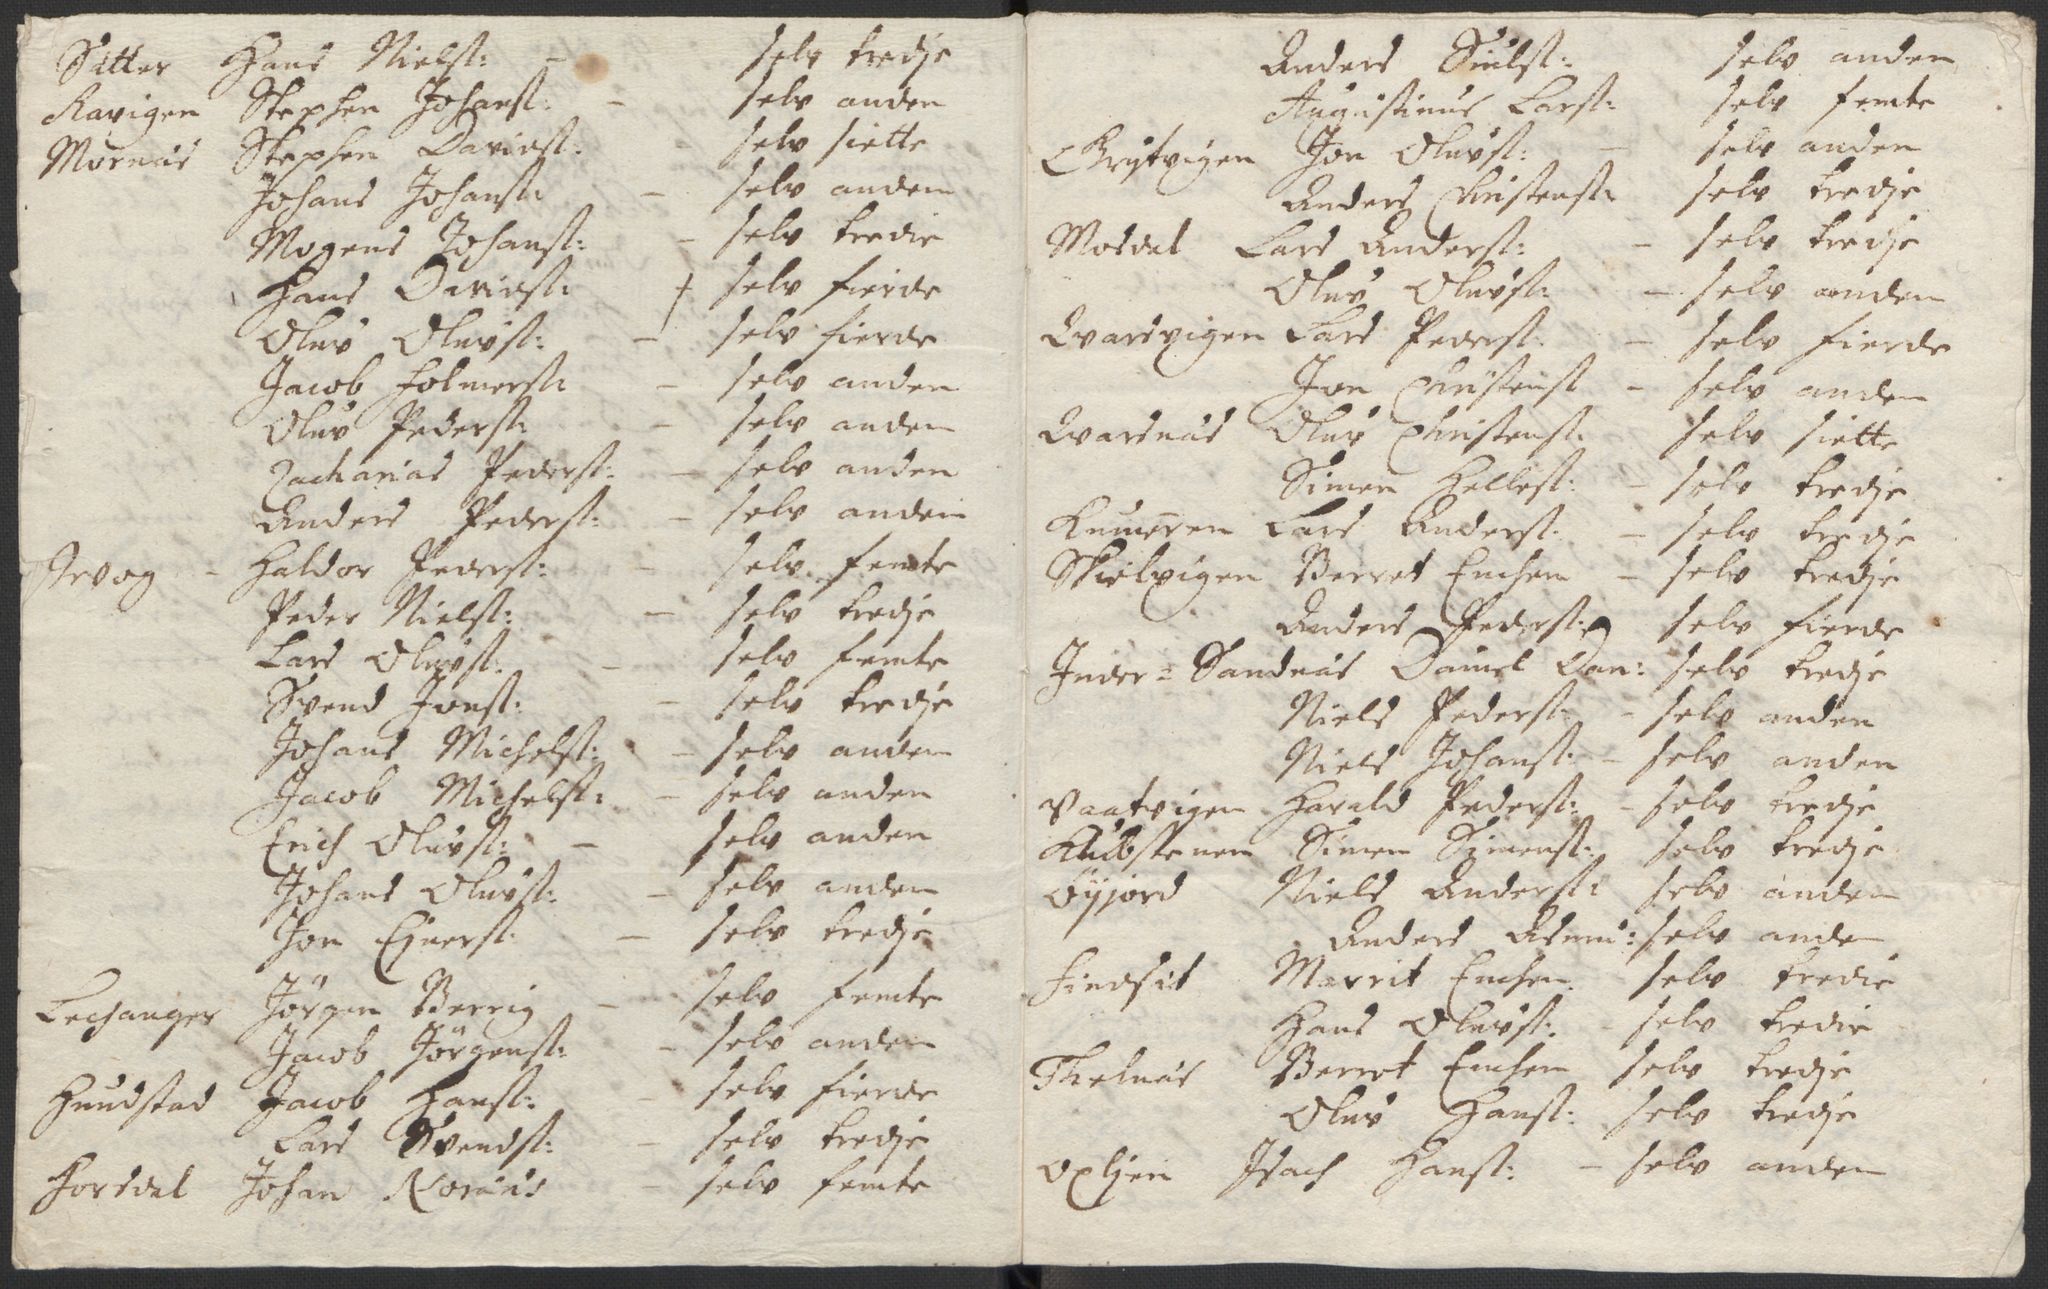 Sitter Hans Nielss: - selv tredje
Ravigen Stephen Johanss: - selv anden
Mornäs Stephen Davidss: selv siette
Johans Johanss: - selv anden
Mogens Johanss: - selv tredie
Hans Davidss: + selv fierde
Oluv Oluvss: - selv fierde
Jacob Holmerss: - selv anden
Oluv Pederss: - selv anden
Zacharias Pederss: - selv anden
Anders Pederss: - selv anden
Jevog - Haldor Pederss: - selv femte
Peder Nielss: - selv tredje
Lars Oluvss: - selv femte
Svend Jonss: - selv tredje
Johans Michelss: - selv anden
Jacob Michelss: - selv anden
Erich Oluvss: - selv anden
Johans Oluvss: - selv anden
Jon Ejnerss: - selv tredje
Lechanger Jörgen Berrig - selv femte
Jacob Jörgenss: - selv anden
Hundstad Jacob Hanss: - selv fierde
Lars Svendss: - selv tredje
Forsdal Johan - selv femte
Anders Siulss: selv anden
Augustinus Larss: selv femte
Chrystvigen Jon Oluvss: - selv anden
Anders Christenss: selv tredje
Mosdal Lars Anderss: - selv tredje
Oluv Oluvss: - selv anden
Qvarsvigen Lars Pederss: - selv fierde
Jon Christenss - selv anden
Qvarsnäs Oluv Christenss: selv siette
Simen Helless: - selv tredje
Kumeren Lars Anderss: - selv tredje
Skielvigen Berret Enchen - selv tredje
Anders Pederss: selv fierde
Inder = Sandnäs Daniel Dan: selv tredje
Niels Pederss: - selv anden
Niels Johanss: - selv anden
Vaatvigen Harald Pederss: - selv tredje
Klubstenen Simen Simenss: selv tredje
Öyjord Niels Anderss: selv anden
Anders Asmu: selv anden
Findsit Marrit Enchen selv tredie
Hans Oluvss: - selv tredie
Thelnäs Berret Enchen selv tredje
Oluv Hanss: selv tredje
Oxlien Isach Hanss: - selv anden